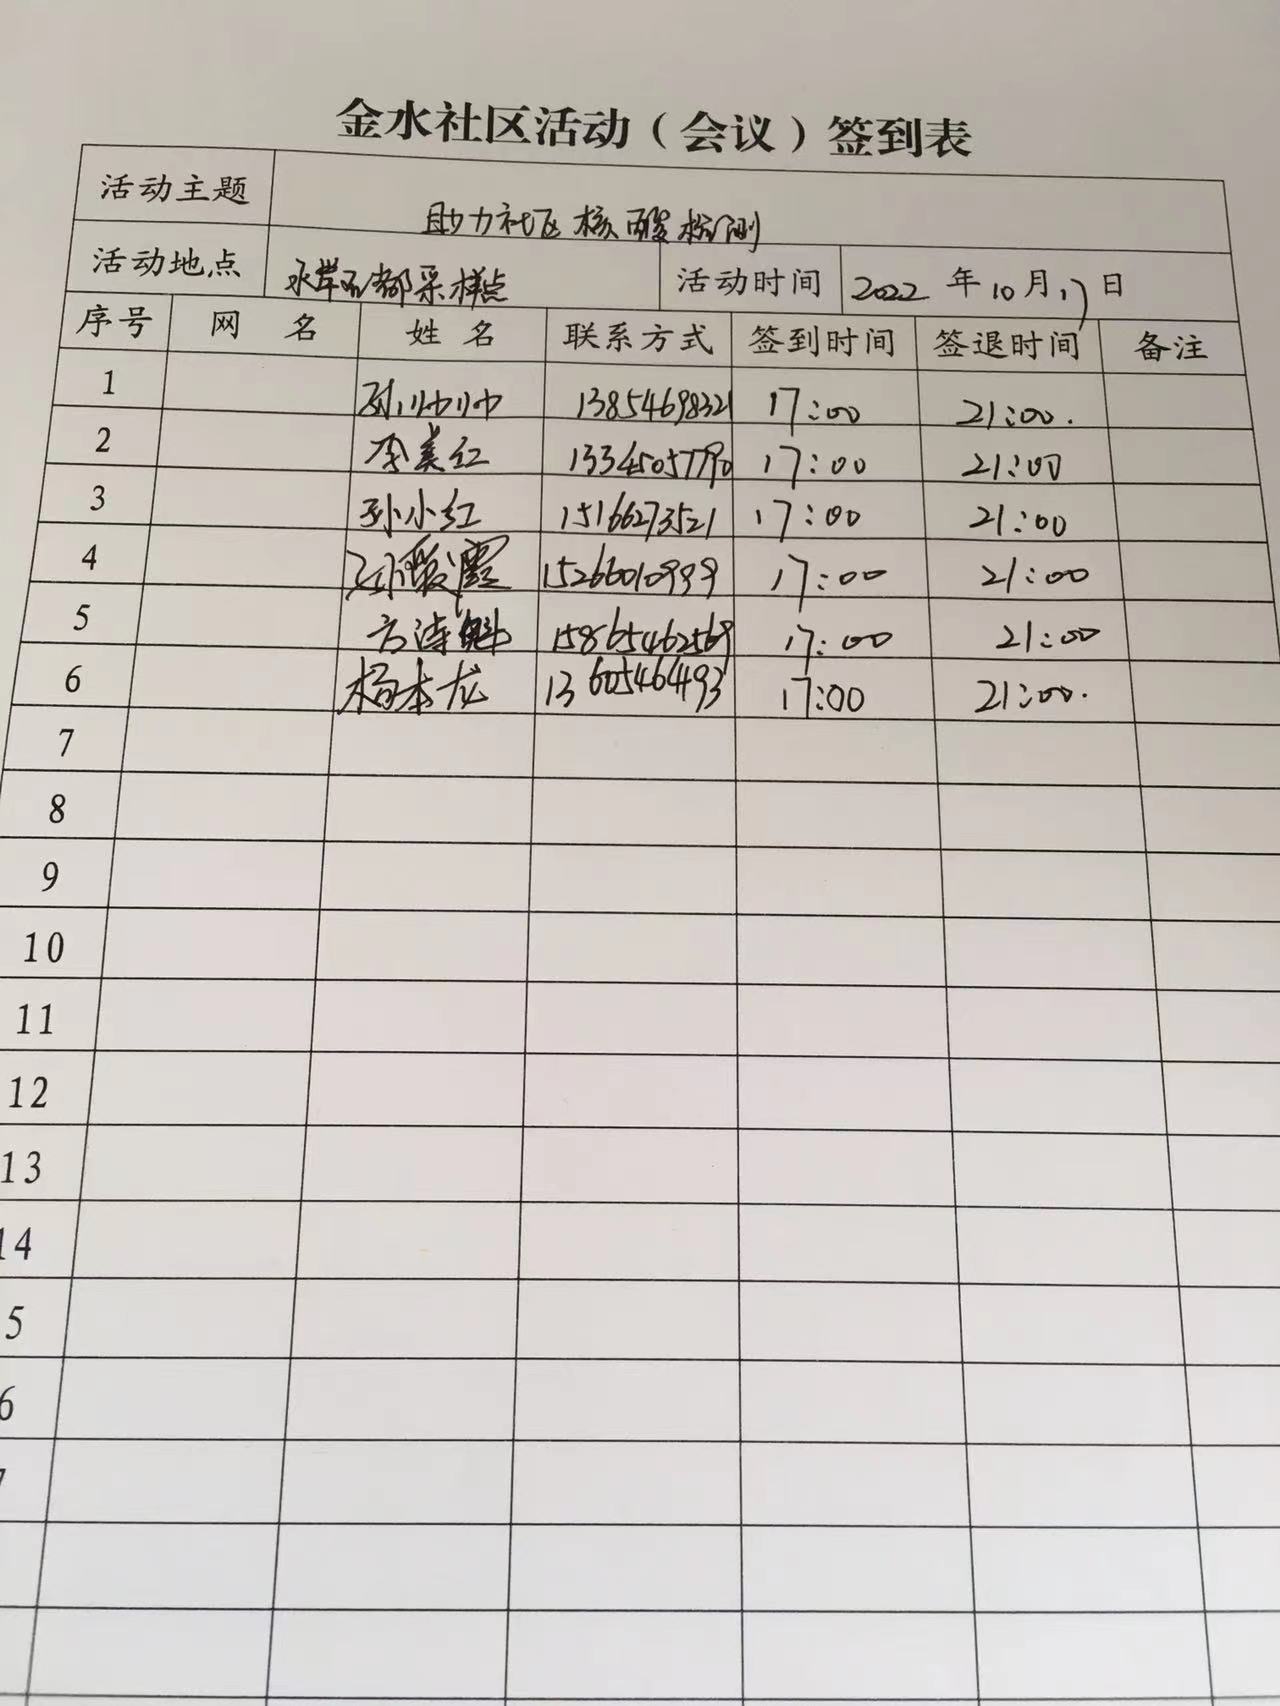 金水社区活动（会议）签到表
活动主题 助力社区核酸检测
活动地点 水岸石都采样点 活动时间 2022 年 10 月 17 日
序号 网 名 姓 名 联系方式 签到时间 签退时间 备注
1 孙帅帅 13854698321 17:00 21:00.
2 李美红 13345057790 17:00 21:00
3 孙小红 15166273521 17:00 21:00
4 15266010999 17:00 21:00
5 方涛魁 15865462569 17:00 21:00
6 杨本龙 13605464493 17:00 21:00.
7
8
9
10
11
12
13
14
5
6
7